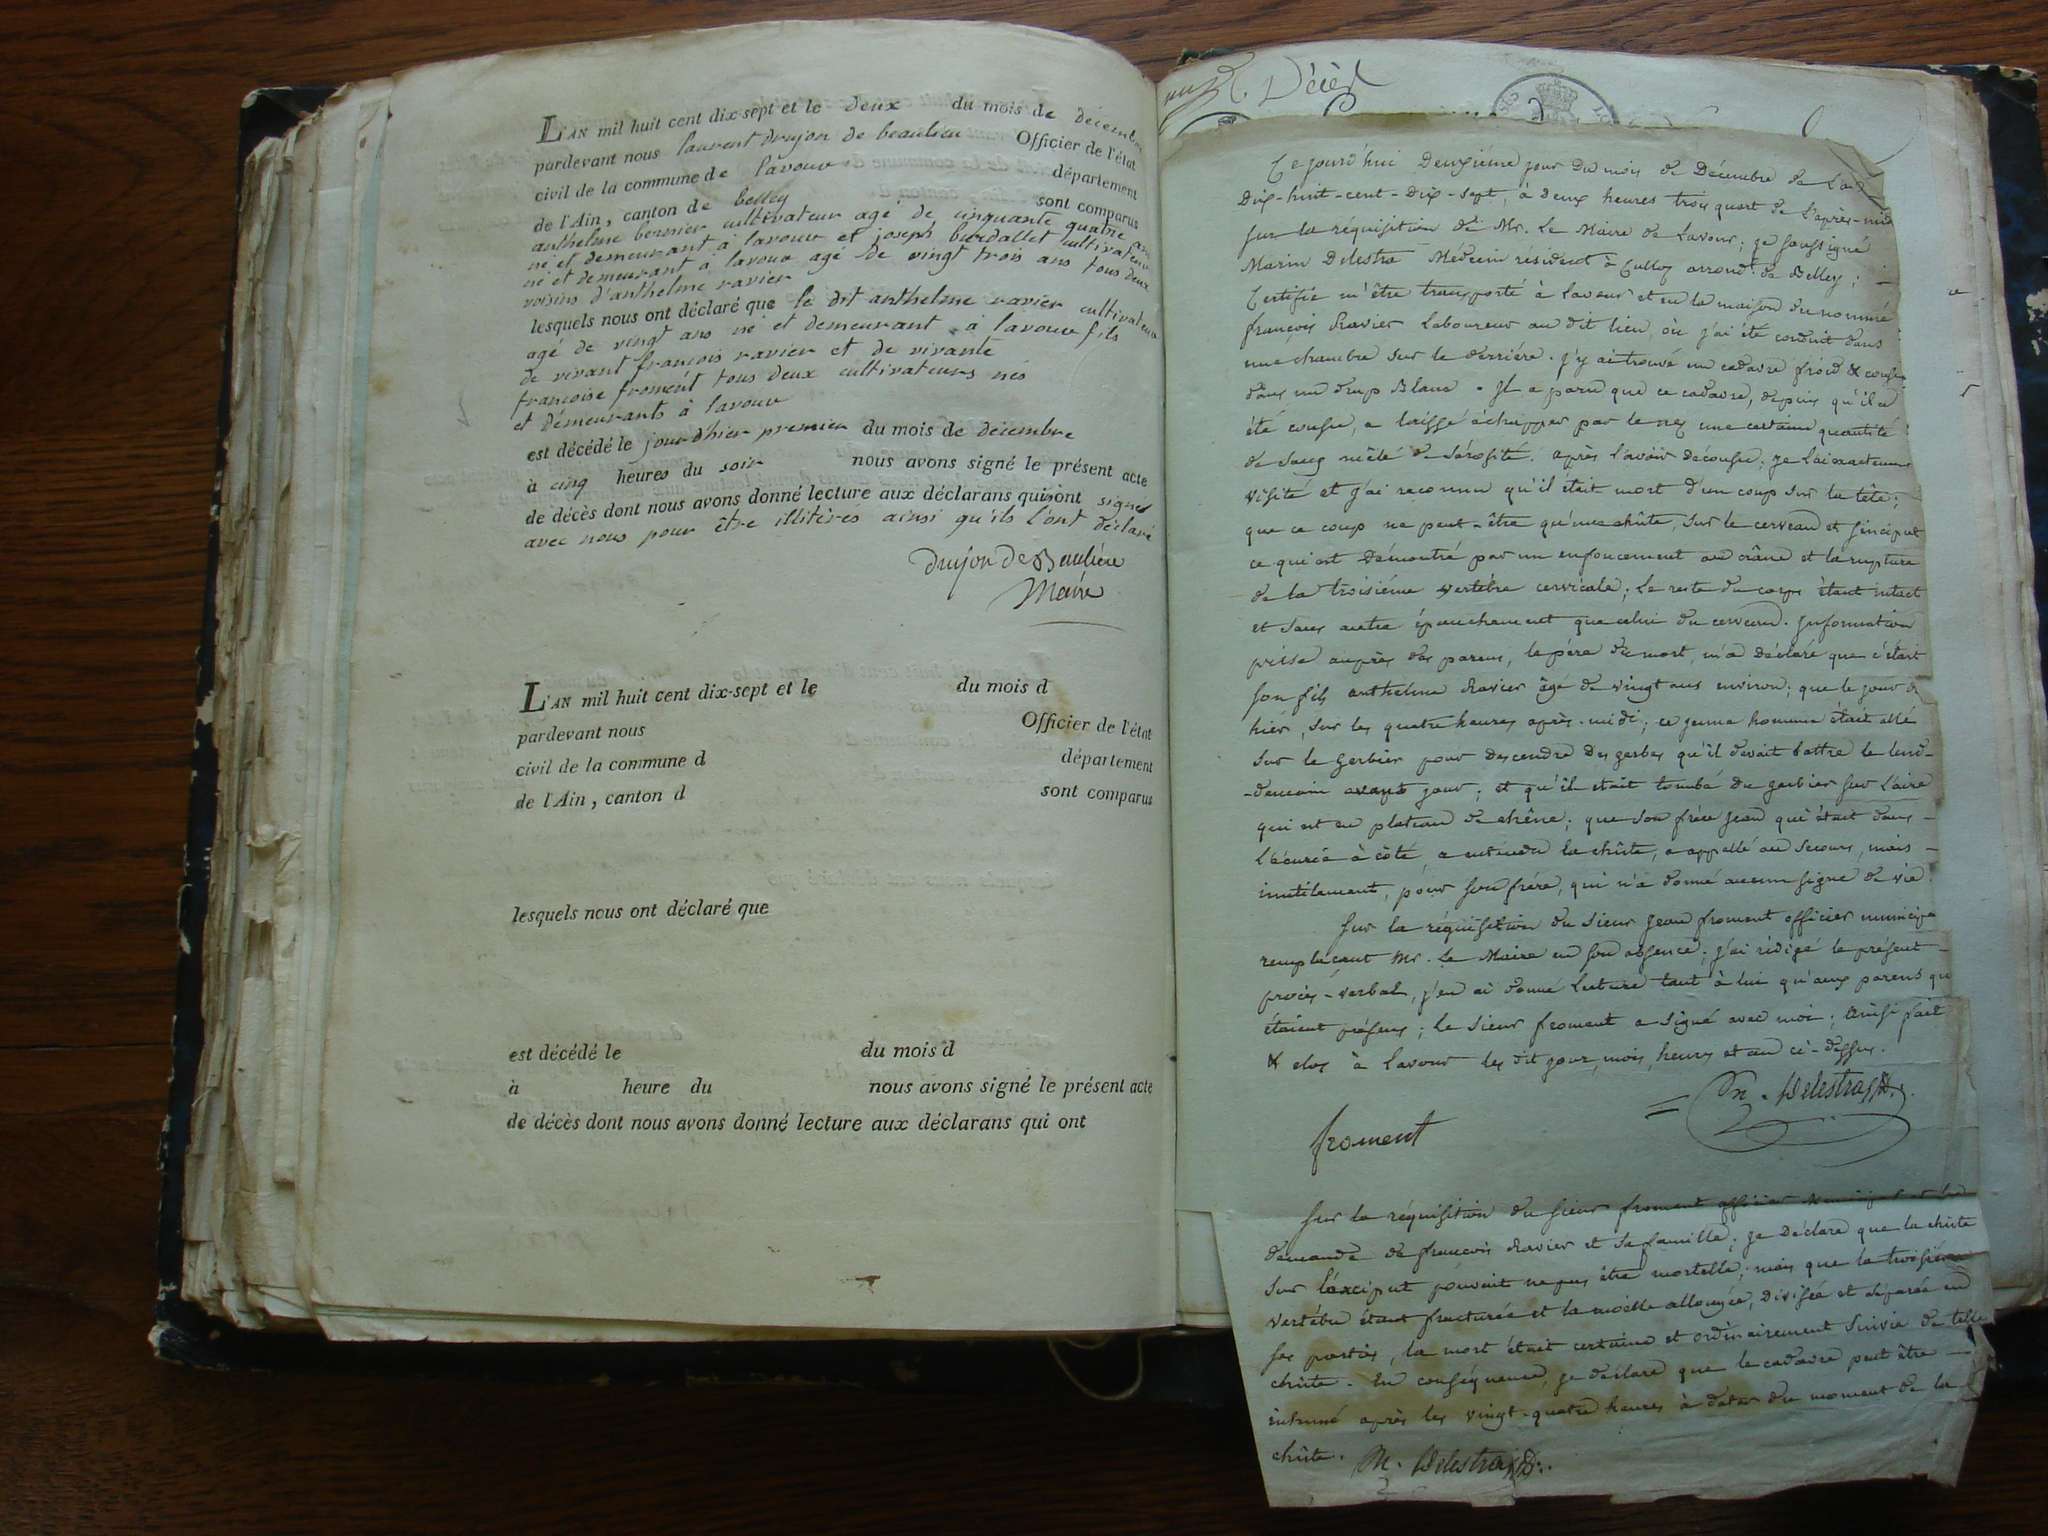 L'AN mil huit cent dix-sept et le deux du mois de décembre
pardevant nous laurent drujon de beaulieu Officier de l'état
civil de la commune de lavour département
de l'Ain, canton de belley sont comparus
anthelme bernier cultivateur agé de cinquante quatre ans
né et demeurant à lavour et joseph burdallet cultivateur
né et demeurant à lavour agé de vingt trois ans tous deux
voisins d'anthelme ravier
lesquels nous ont déclaré que le dit anthelme ravier cultivateur
agé de vingt ans né et demeurant à lavour fils
de vivant françois ravier et de vivante
francoise froment tous deux cultivateurs nés
et demeurants à lavour
est décédé le jour d'hier premier du mois de décembre
à cinq heures du soir nous avons signé le présent acte
de décès dont nous avons donné lecture aux déclarans qui ont signés
avec nous pour être illitérés ainsi qu'ils l'ont déclaré
drujon de Beaulieu
Maire
L'AN mil huit cent dix-sept et le du mois d
pardevant nous Officier de l'état
civil de la commune d département
de l'Ain, canton d sont comparus
lesquels nous ont déclaré que
est décédé le du mois d
à heure du nous avons signé le présent acte
de décès dont nous avons donné lecture aux déclarans qui ont
Décès
Ce jourd'hui Deuxième jour du mois de Décembre de L'an
Dix-huit-cent-Dix-sept, à deux heures trois quart de l'après-midi
sur la réquisition de Mr. Le Maire de Lavour; je soussigné
Marin Delestra Médecin résident à Culloz arrond.t de Belley;
Certifie m'être transporté à Lavour et en la maison du nommé
françois Ravier Laboureur au dit lieu, où j'ai été conduit dans
une chambre sur le derrière. j'y ai trouvé un cadavre froid & cousu
dans un drap Blanc. Il a paru que ce cadavre, depuis qu'il a
été cousu, a laissé échapper par le nez une certaine quantité
de sang mêlé de sérosité. après l'avoir décousu; je l'ai exactement
visité et j'ai reconnu qu'il était mort d'un coup sur la tête;
que ce coup ne peut-être qu'une chûte, sur le cerveau et sinciput
ce qui est démontré par un enfoncement au crâne et la rupture
de la troisième vertèbre cervicale; le reste du corps étant intact
et sans autre épanchement que celui du cerveau. information
prise auprès des parens, le père du mort, m'a déclaré que c'était
son fils anthelme Ravier âgé de vingt ans environ; que le jour d'
hier, sur les quatre heures après-midi; ce jeune homme était allé
sur le gerbier pour descendre des gerbes qu'il devait battre le lend-
-demain avant jour; et qu'il était tombé du gerbier sur L'aire
qui est en plateau de chêne; que son frère jean qui était dans
l'écurie à côté, a entendu la chûte, a appellé au secours, mais
inutilement, pour son frère, qui n'a donné aucun signe de vie.
Sur la réquisition du Sieur jean froment officier municipa
remplaçant Mr. Le Maire en son absence; j'ai rédigé le présent
procès-verbal, j'en ai donné lecture tant à lui qu'aux parens qui
étaient présens; le sieur froment a signé avec moi; Ainsi fait
& clos à Lavour les dit jour, mois, heures et an ci-dessus.
M. Delestra
froment
Sur la réquisition du sieur froment officier Municipal et la
demande de françois Ravier et sa famille; je Déclare que la chûte
sur l'occiput pouvait ne pas être mortelle; mais que la troisième
vertèbre étant fracturée et la moëlle allongée, divisée et séparée en
ses parties, la mort était certaine et ordinairement suivie de telle
chûte. En conséquence, je déclare que le cadavre peut être
inhumé après les vingt-quatre heures à dater du moment de la
chûte. M. Delestra